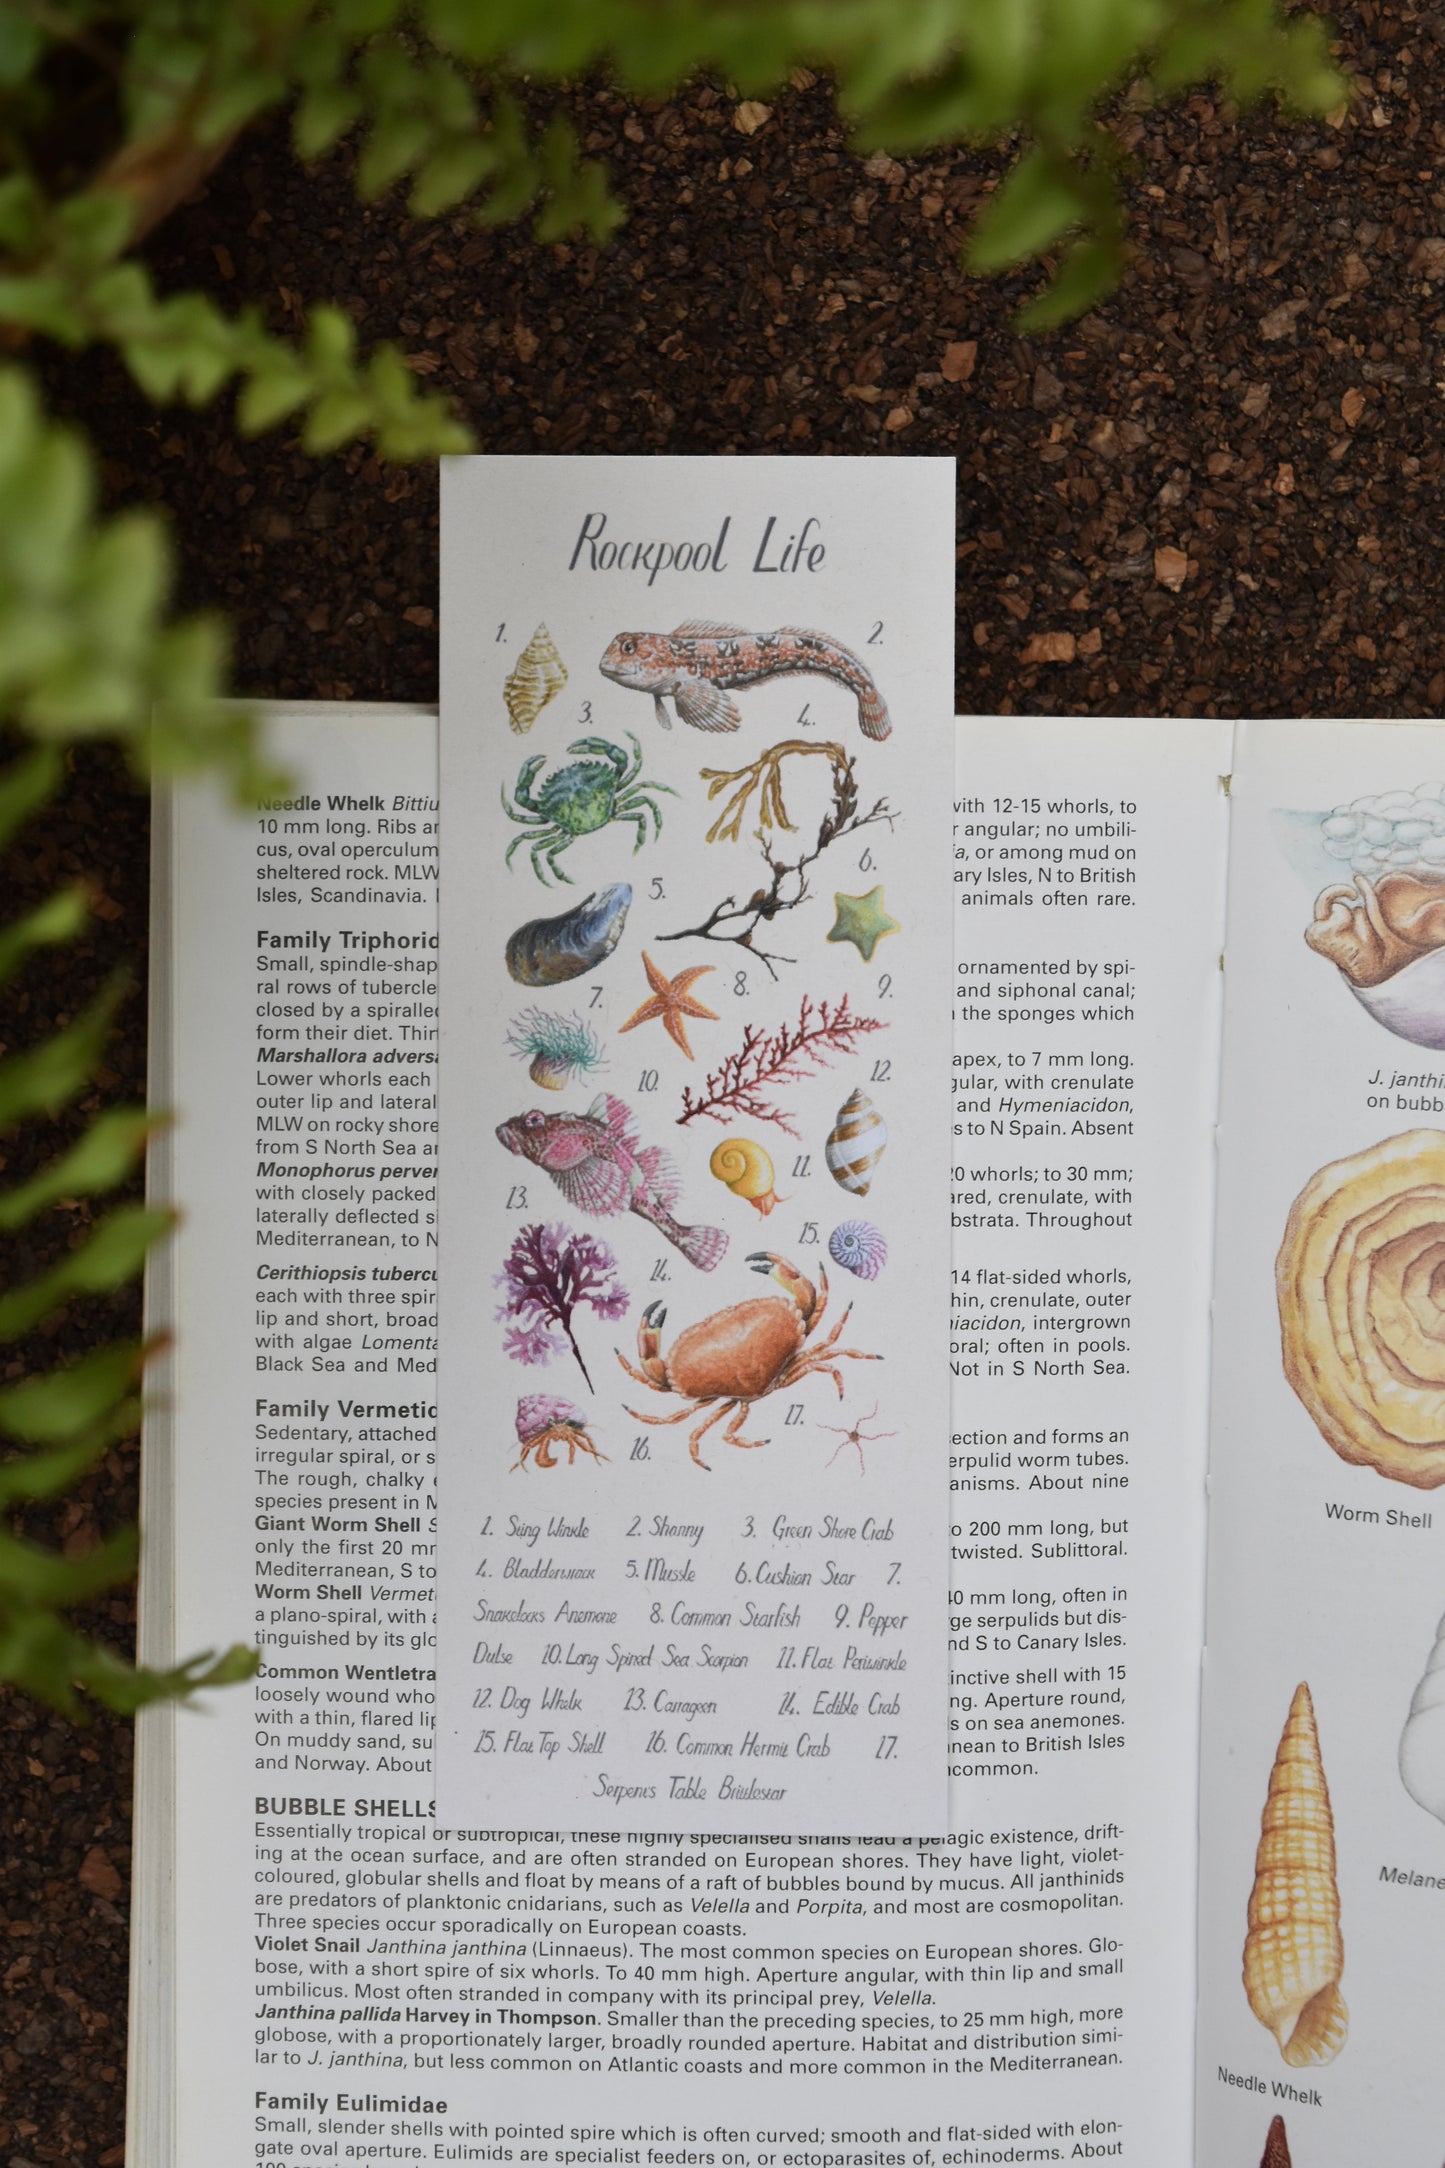 Rockpool Life
1.
2.
3.
4.
5.
6.
7.
8.
9.
10.
12.
11.
13.
15.
14.
17.
16.
1. Sting Winkle 2. Shanny 3. Green Shore Crab
4. Bladderwrack 5. Mussle 6. Cushion Star 7.
Snakelocks Anemone 8. Common Starfish 9. Pepper
Dulse 10. Long Spined Sea Scorpion 11. Flat Periwinkle
12. Dog Whelk 13. Carrageen 14. Edible Crab
15. Flat Top Shell 16. Common Hermit Crab 17.
Serpent's Table Brittlestar
Needle Whelk Bittiu
10 mm long. Ribs ar
cus, oval operculum
sheltered rock. MLW
Isles, Scandinavia.
Family Triphorid
Small, spindle-shap
ral rows of tubercle
closed by a spiralled
form their diet. Thirt
Marshallora adversa
Lower whorls each
outer lip and lateral
MLW on rocky shore
from S North Sea ar
Monophorus perver
with closely packed
laterally deflected si
Mediterranean, to N
Cerithiopsis tubercu
each with three spir
lip and short, broad
with algae Lomenta
Black Sea and Med
Family Vermetid
Sedentary, attached
irregular spiral, or s
The rough, chalky
species present in M
Giant Worm Shell S
only the first 20 mm
Mediterranean, S to
Worm Shell Vermet
a plano-spiral, with a
tinguished by its glo
Common Wentletra
loosely wound who
with a thin, flared lip
On muddy sand, su
and Norway. About
with 12-15 whorls, to
r angular; no umbili-
ia, or among mud on
ary Isles, N to British
animals often rare.
ornamented by spi-
and siphonal canal;
the sponges which
apex, to 7 mm long.
gular, with crenulate
and Hymeniacidon,
s to N Spain. Absent
20 whorls; to 30 mm;
ared, crenulate, with
bstrata. Throughout
14 flat-sided whorls,
hin, crenulate, outer
niacidon, intergrown
oral; often in pools.
Not in S North Sea.
ection and forms an
erpulid worm tubes.
anisms. About nine
o 200 mm long, but
twisted. Sublittoral.
40 mm long, often in
ge serpulids but dis-
nd S to Canary Isles.
inctive shell with 15
ng. Aperture round,
s on sea anemones.
nean to British Isles
common.
BUBBLE SHELLS
Essentially tropical or subtropical, these highly specialised snails lead a pelagic existence, drift-
ing at the ocean surface, and are often stranded on European shores. They have light, violet-
coloured, globular shells and float by means of a raft of bubbles bound by mucus. All janthinids
are predators of planktonic cnidarians, such as Velella and Porpita, and most are cosmopolitan.
Three species occur sporadically on European coasts.
Violet Snail Janthina janthina (Linnaeus). The most common species on European shores. Glo-
bose, with a short spire of six whorls. To 40 mm high. Aperture angular, with thin lip and small
umbilicus. Most often stranded in company with its principal prey, Velella.
Janthina pallida Harvey in Thompson. Smaller than the preceding species, to 25 mm high, more
globose, with a proportionately larger, broadly rounded aperture. Habitat and distribution simi-
lar to J. janthina, but less common on Atlantic coasts and more common in the Mediterranean.
Family Eulimidae
Small, slender shells with pointed spire which is often curved; smooth and flat-sided with elon-
gate oval aperture. Eulimids are specialist feeders on, or ectoparasites of, echinoderms. About
J. janthi
on bubb
Worm Shell
Melane
Needle Whelk